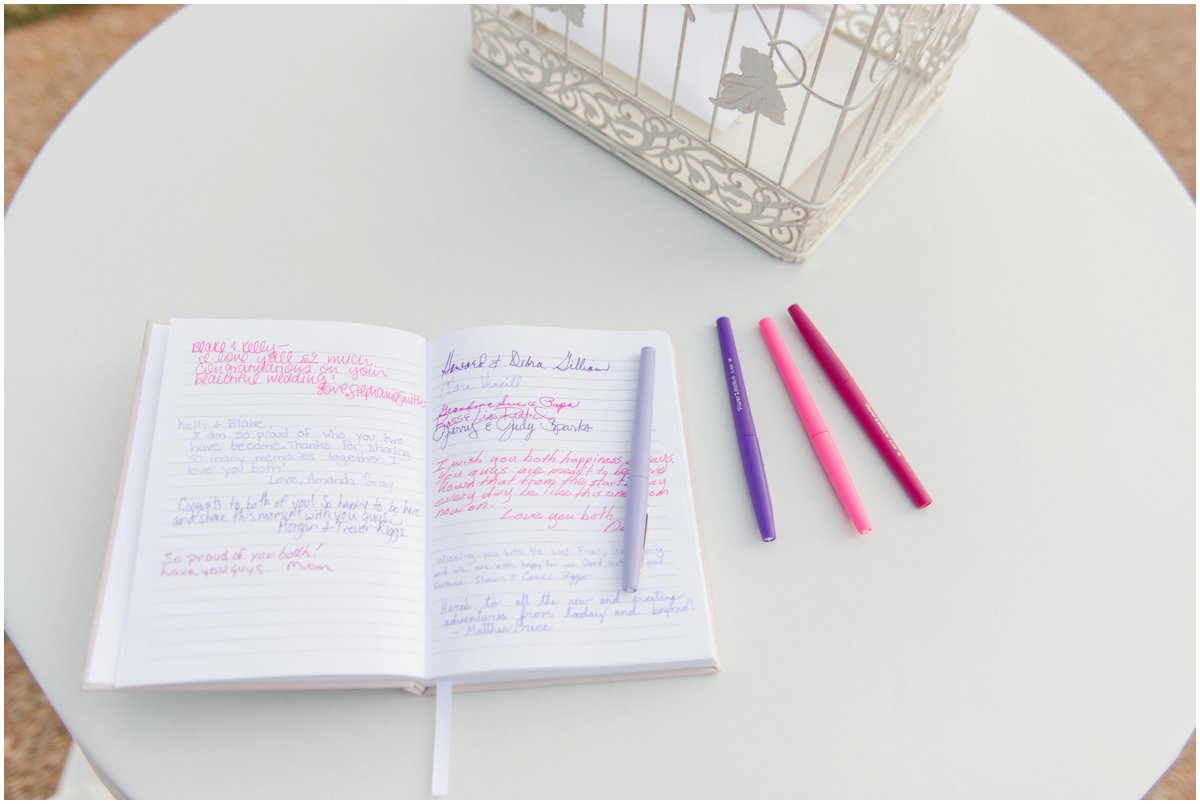 Blake & Kelly-
I love y'all so much
Congratulations on your
beautiful wedding!
Love, Stephanie Smith
Kelly & Blake,
I am so proud of who you two
have become. Thanks for sharing
so many memories together. I
love you both!
Love, Amanda Gray
Congrats to both of you! So happy to be here
and share this moment with you guys
Morgan & Trevor Riggs.
So proud of you both!
Love you guys. Mom
Howard & Debra Gilliam
Clare Vencill
Grandma Sue & Papa
Ross & Lisa
Jerry & Judy Sparks
I wish you both happiness
You guys are meant to be
nown that from the start.
every day be like this one
now on.
Love you both
Wishing you both the best. Finally
and we are both happy for you. Good
fortune. Shawn &
Here's to all the new and exciting
adventures from today and beyond!!
- Matthew Price